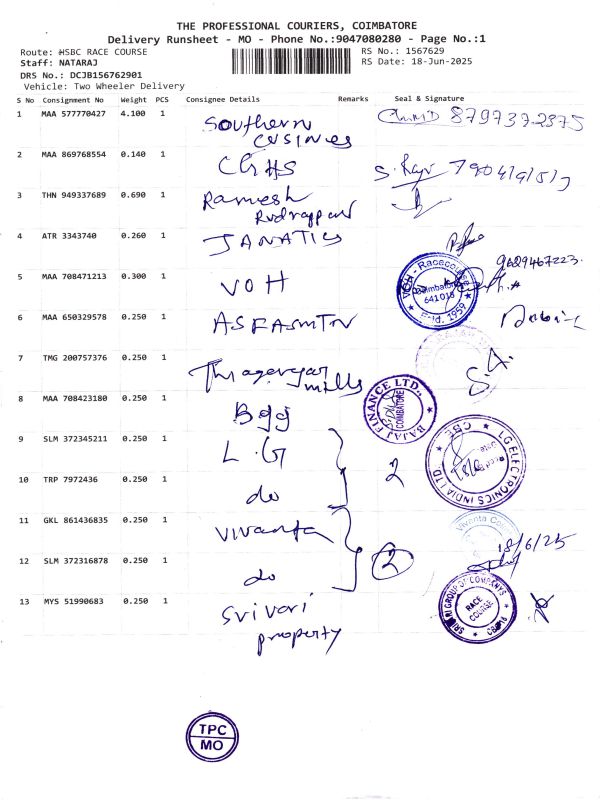 THE PROFESSIONAL COURIERS, COIMBATORE
Delivery Runsheet - MO - Phone No.:9047080280 - Page No.:1
Route: HSBC RACE COURSE
RS No.: 1567629
Staff: NATARAJ
RS Date: 18-Jun-2025
DRS No.: DCJB156762901
Vehicle: Two Wheeler Delivery
S No Consignment No Weight PCS Consignee Details Remarks Seal & Signature
1 MAA 577770427 4.100 1 Southern 8797372375
2 MAA 869768554 0.140 1 CGHS S. Raju
3 THN 949337689 0.690 1 Ramesh
4 ATR 3343740 0.260 1 JANATICS
5 MAA 708471213 0.300 1 VOH 9629467223
VOH - Racecourse Coimbatore 641018 Estd. 1959
6 MAA 650329578 0.250 1
7 TMG 200757376 0.250 1 mills S.A.
8 MAA 708423180 0.250 1
BAJAJ FINANCE LTD., COIMBATORE
9 SLM 372345211 0.250 1 L.G 2
LG ELECTRONICS INDIA LTD CBE
10 TRP 7972436 0.250 1 do
11 GKL 861436835 0.250 1 vivanta
Vivanta 18/6/25
12 SLM 372316878 0.250 1 do 2
13 MYS 51990683 0.250 1 Srivari
property
GROUP OF COMPANIES RACE COURSE
TPC
MO